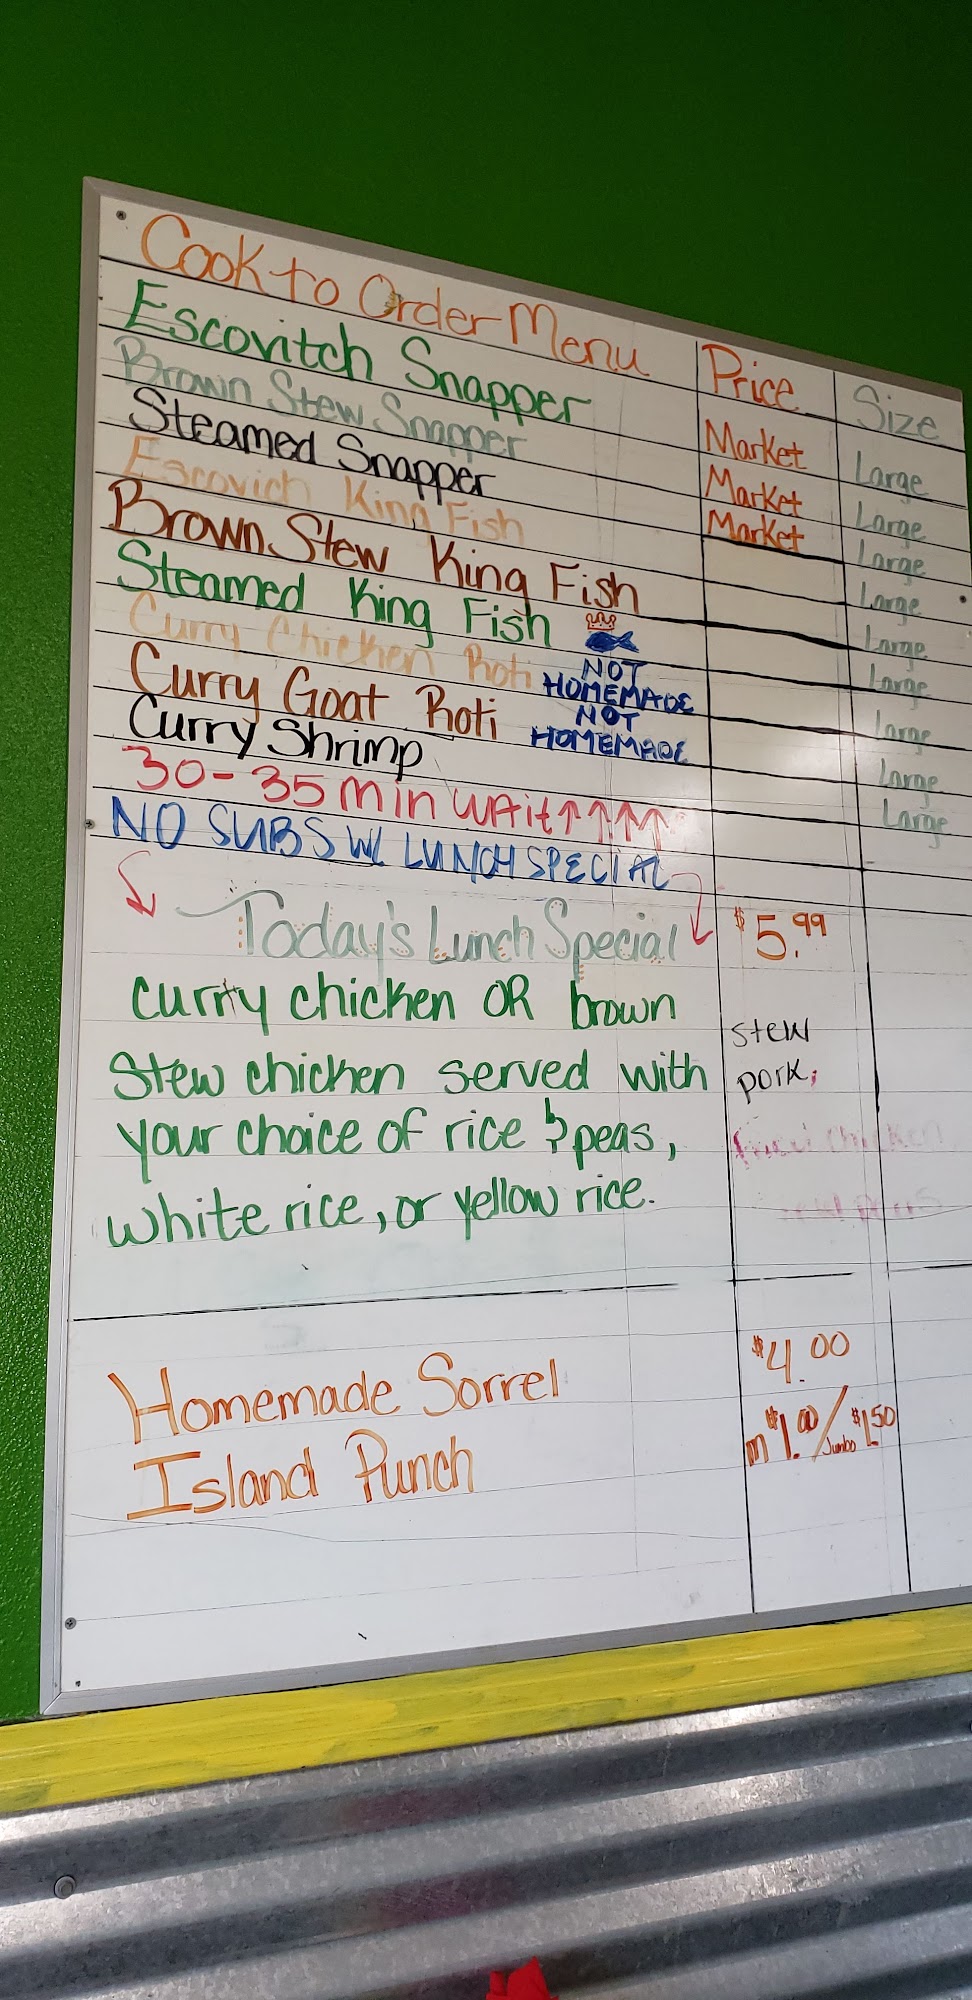 Cook to Order Menu Price Size
Escovitch Snapper Market Large
Brown Stew Snapper Market Large
Steamed Snapper Market Large
Escovich King Fish Large
Brown Stew King Fish Large
Steamed King Fish Large
Curry Chicken Roti NOT HOMEMADE Large
Curry Goat Roti NOT HOMEMADE Large
Curry Shrimp Large
30-35 min wait↑↑↑↑
NO SUBS W/ LUNCH SPECIAL
Today's Lunch Special $5.99
curry chicken OR brown
stew chicken served with
your choice of rice & peas,
white rice, or yellow rice.
stew
pork,
chicken
Homemade Sorrel $4.00
Island Punch m $1.00/Jumbo $1.50